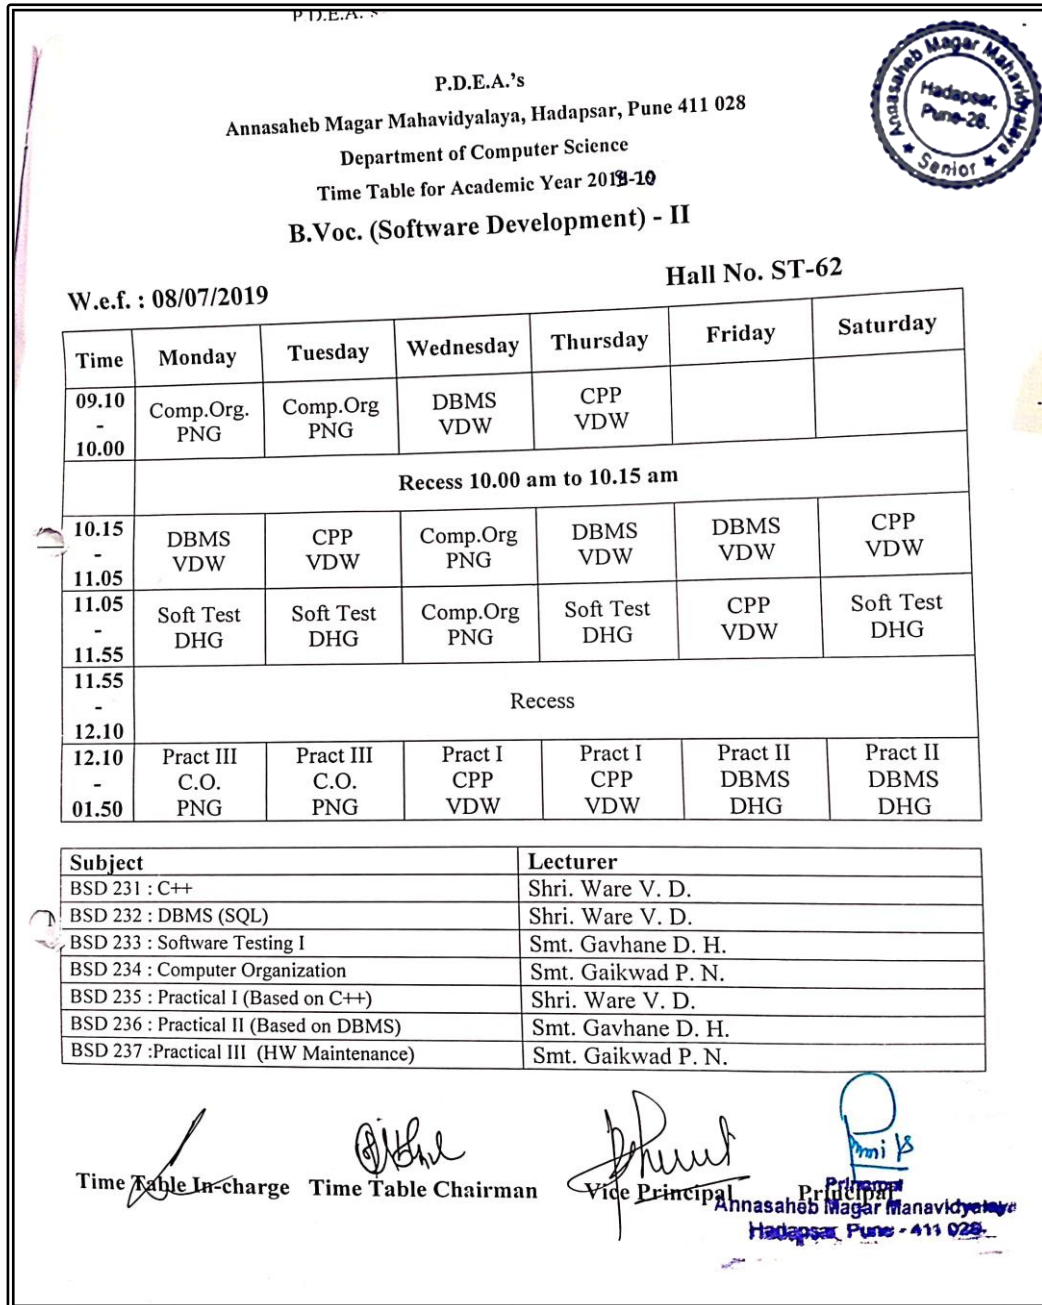 P.D.E.A.'s
P.D.E.A.'s
Annasaheb Magar Mahavidyalaya, Hadapsar, Pune 411 028
Department of Computer Science
Time Table for Academic Year
B.Voc. (Software Development) - II
Annasaheb Magar Mahavidyalaya
Hadapsar,
Pune-28.
★ Senior ★
W.e.f. : 08/07/2019
Hall No. ST-62
Time Monday Tuesday Wednesday Thursday Friday Saturday
09.10 - 10.00 Comp.Org. PNG Comp.Org PNG DBMS VDW CPP VDW
Recess 10.00 am to 10.15 am
10.15 - 11.05 DBMS VDW CPP VDW Comp.Org PNG DBMS VDW DBMS VDW CPP VDW
11.05 - 11.55 Soft Test DHG Soft Test DHG Comp.Org PNG Soft Test DHG CPP VDW Soft Test DHG
11.55 - 12.10 Recess
12.10 - 01.50 Pract III C.O. PNG Pract III C.O. PNG Pract I CPP VDW Pract I CPP VDW Pract II DBMS DHG Pract II DBMS DHG
Subject Lecturer
BSD 231 : C++ Shri. Ware V. D.
BSD 232 : DBMS (SQL) Shri. Ware V. D.
BSD 233 : Software Testing I Smt. Gavhane D. H.
BSD 234 : Computer Organization Smt. Gaikwad P. N.
BSD 235 : Practical I (Based on C++) Shri. Ware V. D.
BSD 236 : Practical II (Based on DBMS) Smt. Gavhane D. H.
BSD 237 :Practical III (HW Maintenance) Smt. Gaikwad P. N.
Time Table In-charge Time Table Chairman Vice Principal Principal
Principal
Annasaheb Magar Mahavidyalaya
Hadapsar, Pune - 411 028.